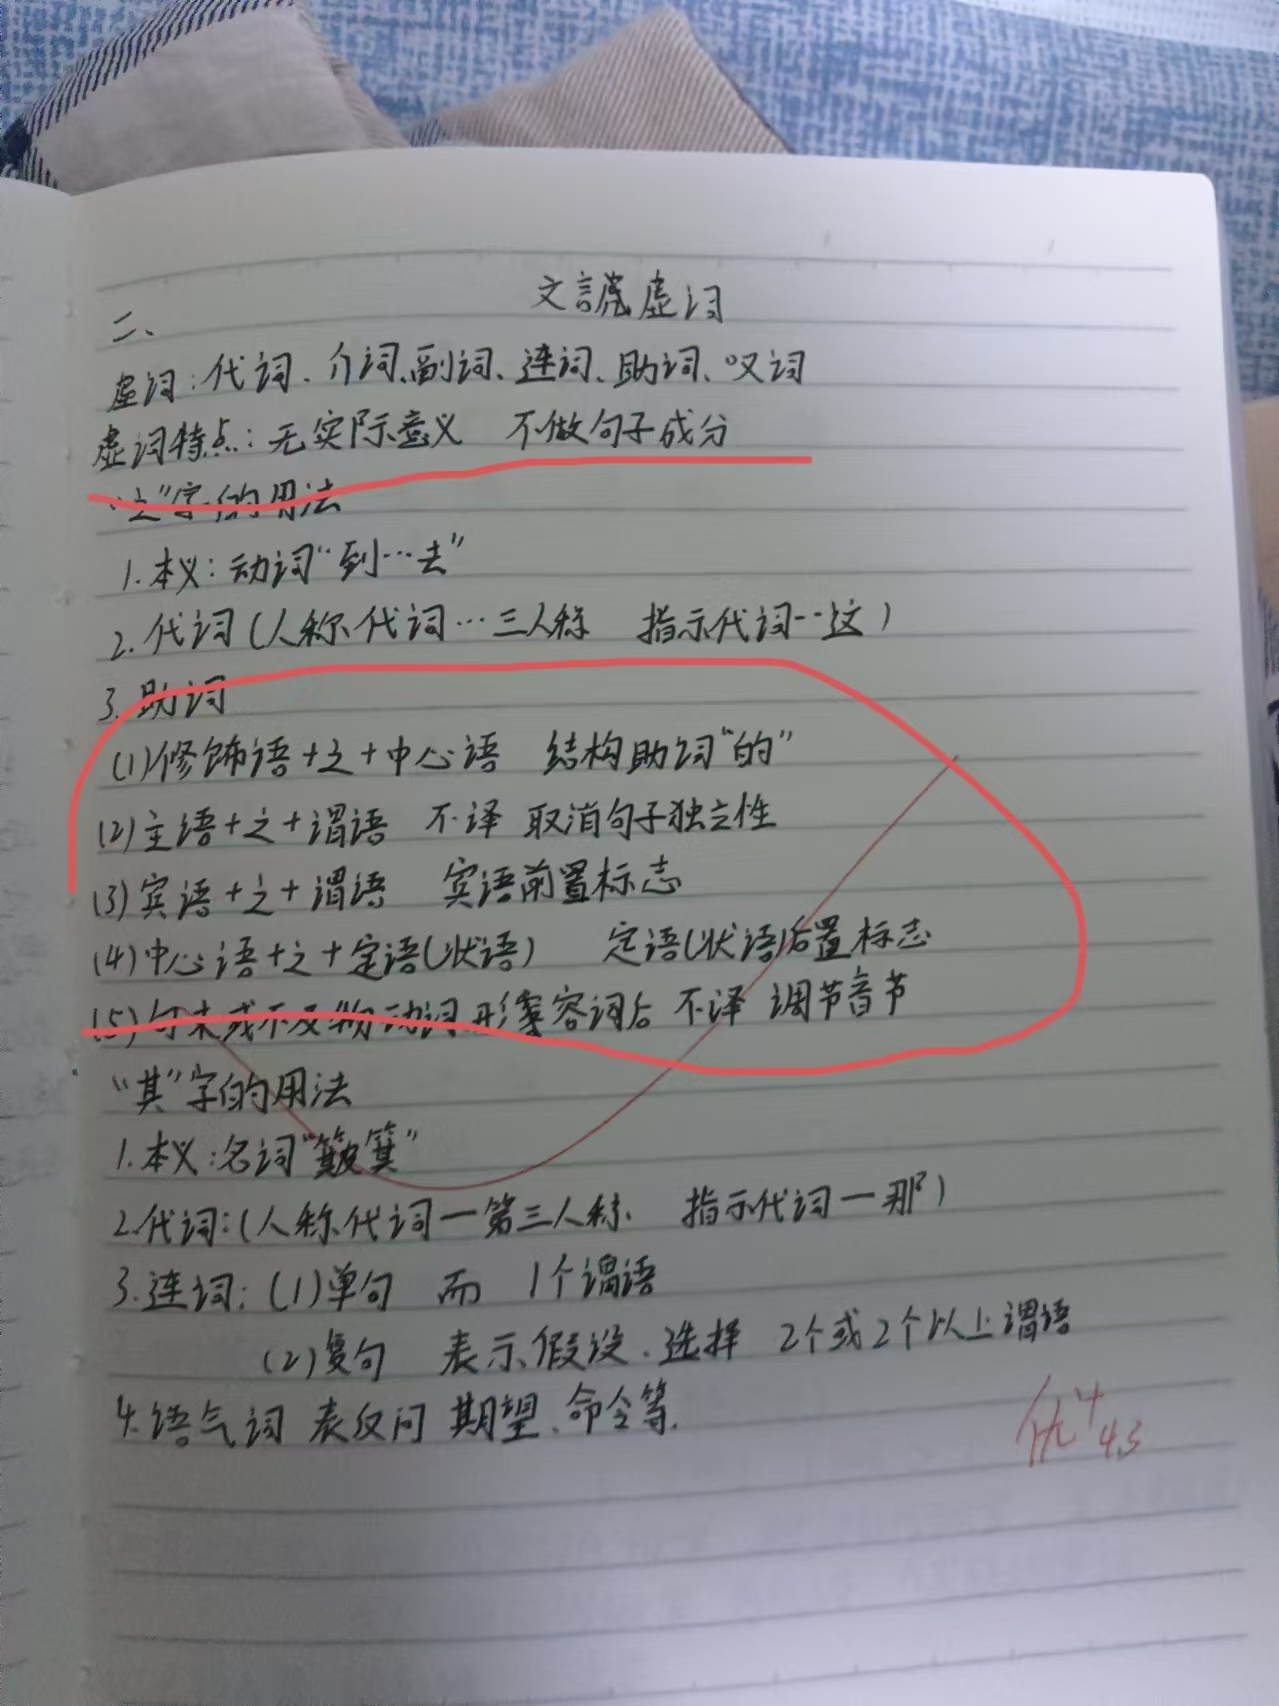 文言虚词
二、
虚词:代词、介词、副词、连词、助词、叹词
虚词特点:无实际意义 不做句子成分
“之”字的用法
1.本义:动词“到…去”
2.代词(人称代词…三人称 指示代词--这)
3.助词
(1)修饰语+之+中心语 结构助词“的”
(2)主语+之+谓语 不译 取消句子独立性
(3)宾语+之+谓语 宾语前置标志
(4)中心语+之+定语(状语) 定语(状语)后置标志
(5)句末或不及物动词、形容词后 不译 调节音节
“其”字的用法
1.本义:名词“簸箕”
2.代词:(人称代词—第三人称、 指示代词—那)
3.连词:(1)单句 而 1个谓语
(2)复句 表示假设、选择 2个或2个以上谓语
4.语气词 表反问 期望、命令等.
优+
4.3